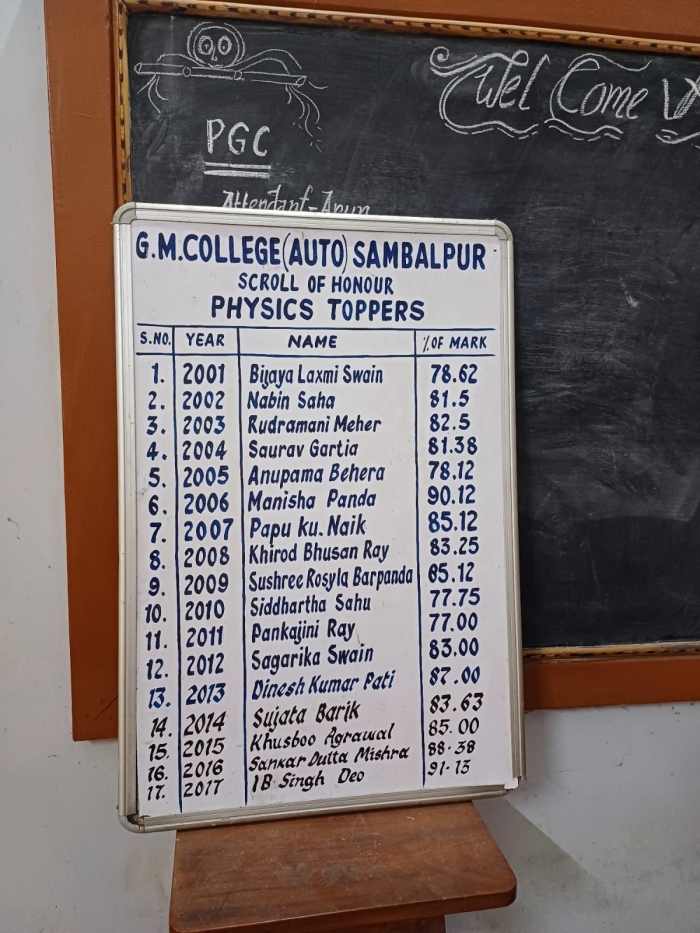 Wel Come
PGC
Attendant-Arun
G.M.COLLEGE(AUTO) SAMBALPUR
SCROLL OF HONOUR
PHYSICS TOPPERS
S.NO. YEAR NAME % OF MARK
1. 2001 Bijaya Laxmi Swain 78.62
2. 2002 Nabin Saha 81.5
3. 2003 Rudramani Meher 82.5
4. 2004 Saurav Gartia 81.38
5. 2005 Anupama Behera 78.12
6. 2006 Manisha Panda 90.12
7. 2007 Papu ku. Naik 85.12
8. 2008 Khirod Bhusan Ray 83.25
9. 2009 Sushree Rosyla Barpanda 65.12
10. 2010 Siddhartha Sahu 77.75
11. 2011 Pankajini Ray 77.00
12. 2012 Sagarika Swain 83.00
13. 2013 Dinesh Kumar Pati 87.00
14. 2014 Sujata Barik 83.63
15. 2015 Khusboo Agrawal 85.00
16. 2016 Sankar Dutta Mishra 88.38
17. 2017 IB Singh Deo 91.13